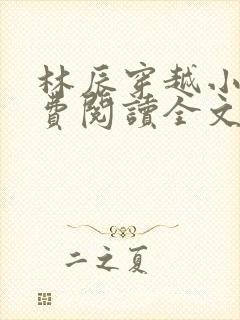 林辰穿越小
費閱讀全文
二之夏